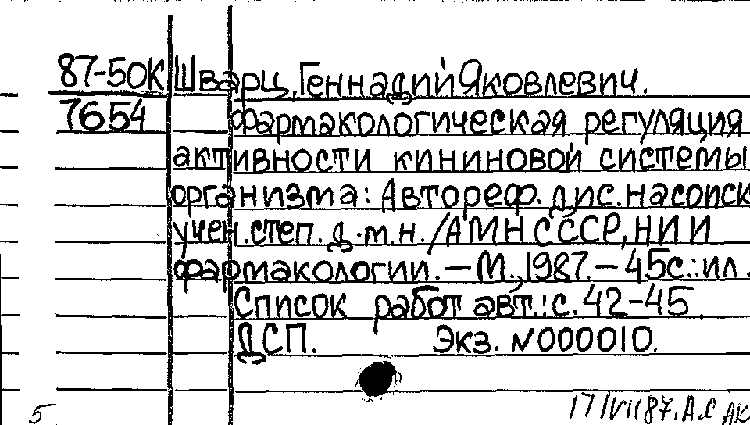 87-50К Шварц, Геннадий Яковлевич.
7654 Фармакологическая регуляция
активности кининовой системы
организма: Автореф. дис. на соиск
учен. степ. д.м.н. /АМН СССР, НИИ
фармакологии. – М., 1987. – 45с.: ил.
Список работ авт.: с. 42-45.
ДСП. Экз. №000010.
5 17/VII 87. А.С